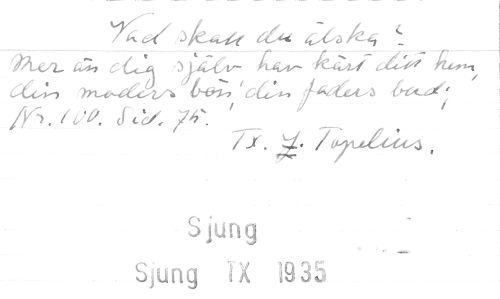 Vad skall du älska?
Mer än dig själv hav kärt ditt hem,
din moders bön, din faders bud;
Nr. 100. Sid. 75.
Tx. Z. Topelius.
Sjung
Sjung TX 1935